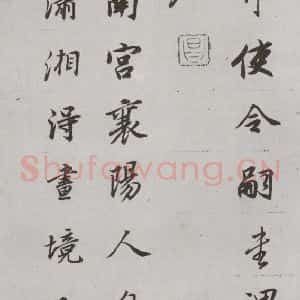 使令嗣奎
南宮襄陽人
瀟湘淂畫境
Shufawang.CN